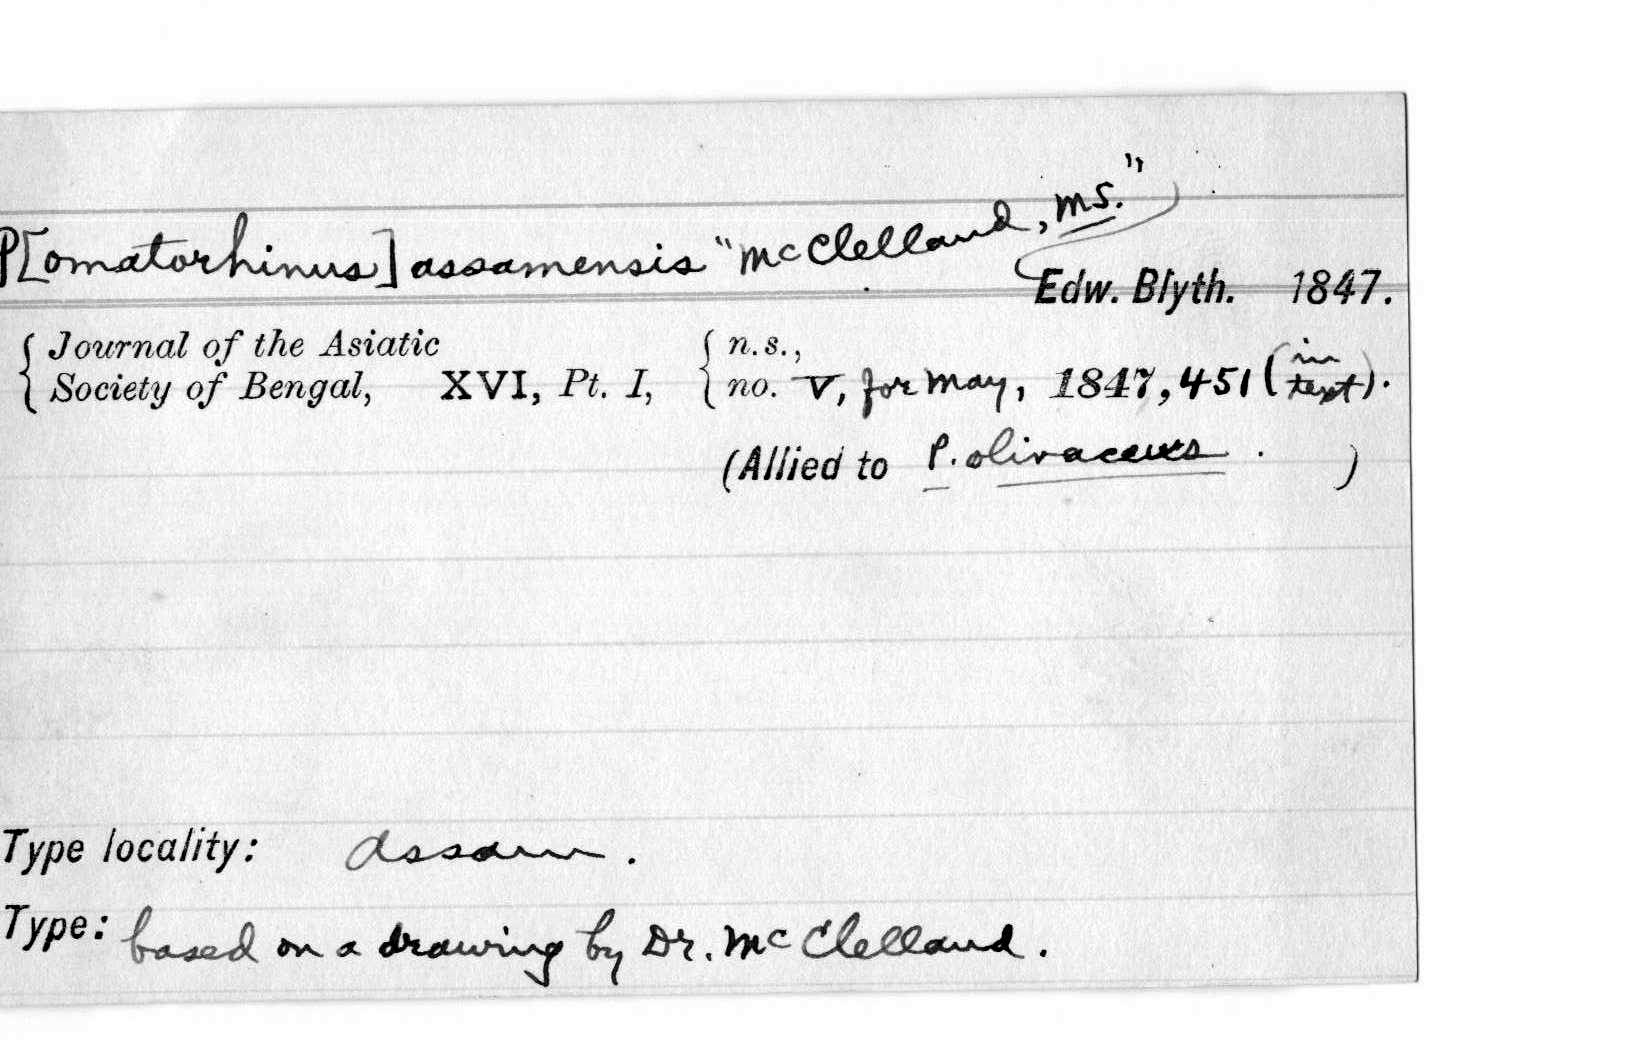 P[omatorhinus] assamensis "McClelland, MS."
Edw. Blyth. 1847.
Journal of the Asiatic
Society of Bengal, XVI, Pt. I, n.s., no. V, for May, 1847, 451 (in text).
(Allied to P. olivaceus . )
Type locality: Assam .
Type: based on a drawing by Dr. McClelland .